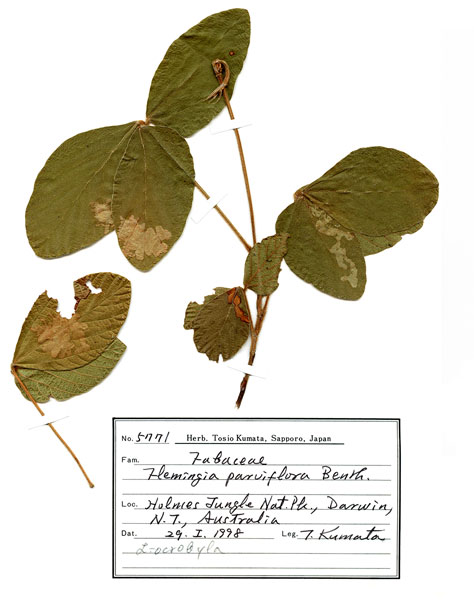 No. 5771 Herb. Tosio Kumata, Sapporo, Japan
Fam. Fabaceae
Flemingia parviflora Benth.
Loc. Holmes Jungle Nat. Pk., Darwin,
N.T., Australia
Dat. 29. I. 1998 Leg. T. Kumata